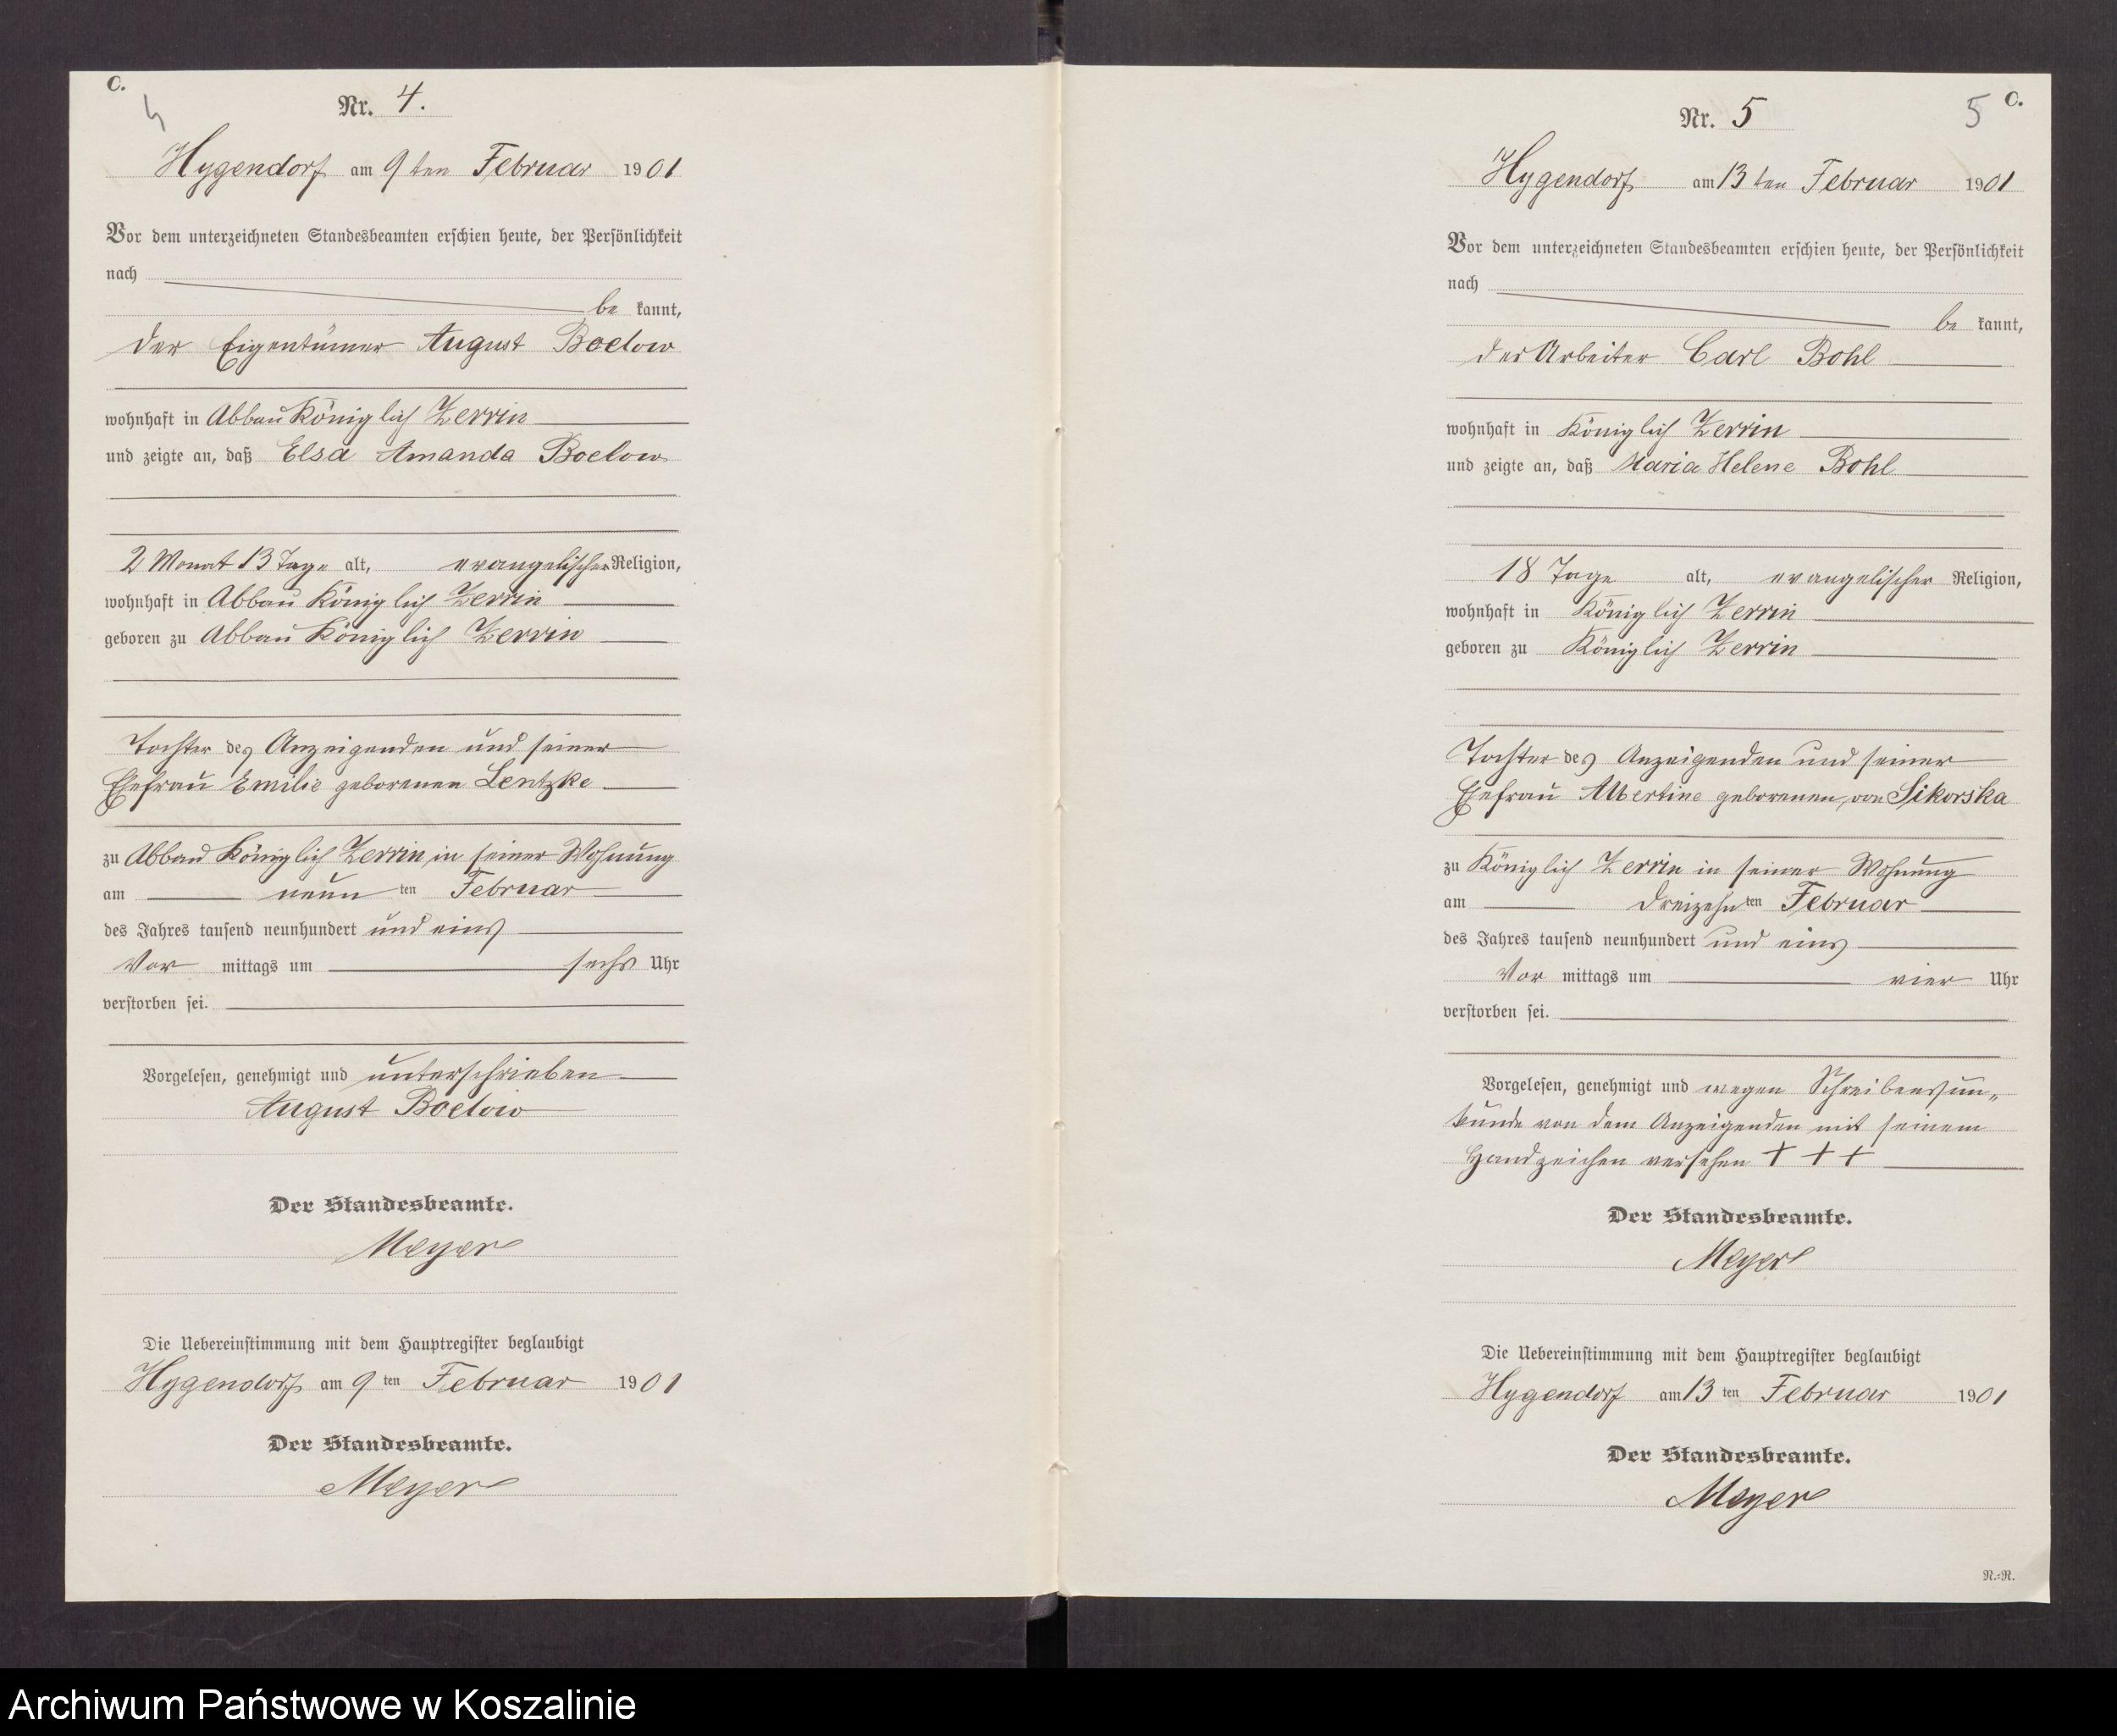 C.
4
Nr. 4.
Hygendorf am 9ten Februar 1901
Vor dem unterzeichneten Standesbeamten erschien heute, der Persönlichkeit
nach
be kannt,
der Eigentümer August Boelow
wohnhaft in Abbau Königlich Zerrin
und zeigte an, daß Elsa Amanda Boelow
2 Monat 13 Tage alt, evangelischer Religion,
wohnhaft in Abbau Königlich Zerrin
geboren zu Abbau Königlich Zerrin
Tochter des Anzeigenden und seiner
Ehefrau Emilie geborenen Lentzke
zu Abbau Königlich Zerrin in seiner Wohnung
am neun ten Februar
des Jahres tausend neunhundert und eins
Vor mittags um sechs Uhr
verstorben sei.
Vorgelesen, genehmigt und unterschrieben
August Boelow
Der Standesbeamte.
Meyer
Die Uebereinstimmung mit dem Hauptregister beglaubigt
Hygendorf am 9 ten Februar 1901
Der Standesbeamte.
Meyer
5 C.
Nr. 5
Hygendorf am 13ten Februar 1901
Vor dem unterzeichneten Standesbeamten erschien heute, der Persönlichkeit
nach
be kannt,
der Arbeiter Carl Bohl
wohnhaft in Königlich Zerrin
und zeigte an, daß Maria Helene Bohl
18 Tage alt, evangelischer Religion,
wohnhaft in Königlich Zerrin
geboren zu Königlich Zerrin
Tochter des Anzeigenden und seiner
Ehefrau Albertine geborenen von Sikorska
zu Königlich Zerrin in seiner Wohnung
am dreizehn ten Februar
des Jahres tausend neunhundert und eins
Vor mittags um vier Uhr
verstorben sei.
Vorgelesen, genehmigt und wegen Schreibensun„
kunde von dem Anzeigenden mit seinem
Handzeichen versehen + + +
Der Standesbeamte.
Meyer
Die Uebereinstimmung mit dem Hauptregister beglaubigt
Hygendorf am 13 ten Februar 1901
Der Standesbeamte.
Meyer
N.=N.
Archiwum Państwowe w Koszalinie